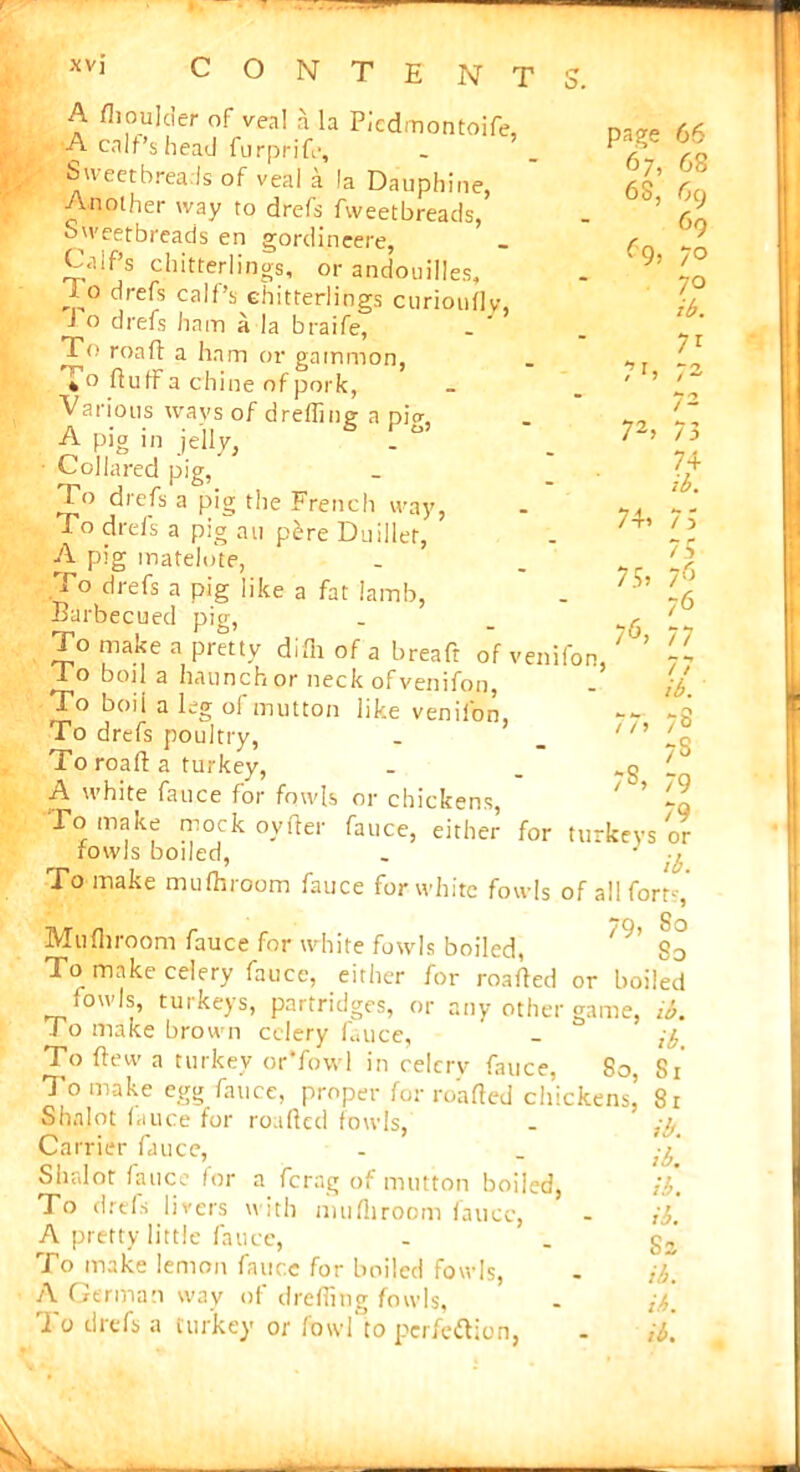 xvi CONTENTS.
A ſhoulder of veal à la Piedmontoiſe, page 66
A calf's head ſurpriſe, - - 67, 68
Sweetbreads of veal à la Dauphine, 68, 69
Another way to dreſs ſweetbreads, - 69
Sweetbreads en gordineere, - 69, 70
Calf's chitterlings, or andouilles, - 70
To dreſs calf's chitterlings curiouſly, ib.
To dreſs ham à la braiſe, - - 71
To roaſt a ham or gammon, - 71, 72
To ſtuff a chine of pork, - - 72
Various ways of dreſſing a pig, - 72, 73
A pig in jelly, - - 74
Collared pig, - - ib.
To dreſs a pig the French way, - 74, 75
To dreſs a pig au père Duillet, - 75
A pig matelote, - - 75, 76
To dreſs a pig like a fat lamb, - 76
Barbecued pig, - - 76, 77
To make a pretty diſh of a breaſt of veniſon, 77
To boil a haunch or neck of veniſon, - ib.
To boil a leg of mutton like veniſon, 77, 78
To dreſs poultry, - - 78
To roaſt a turkey, - - 78, 79
A white ſauce for fowls or chickens, 79
To make mock oyſter ſauce, either for turkeys or
fowls boiled, - - ib.
To make muſhroom ſauce for white fowls of all ſorts,
79, 80
Muſhroom ſauce for white fowls boiled, 80
To make celery ſauce, either for roaſted or boiled
fowls, turkeys, partridges, or any other game, ib.
To make brown celery ſauce, - - ib.
To ſtew a turkey or fowl in celery ſauce, 80, 81
To make egg ſauce, proper for roaſted chickens, 81
Shalot ſauce for roaſted fowls, - ib.
Carrier ſauce, - - ib.
Shalot ſauce for a ſcrag of mutton boiled, ib.
To dreſs livers with muſhroom ſauce, - ib.
A pretty little ſauce, - - 82
To make lemon ſauce for boiled fowls, - ib.
A German way of dreſſing fowls, - ib.
To dreſs a turkey or fowl to perfection, - ib.